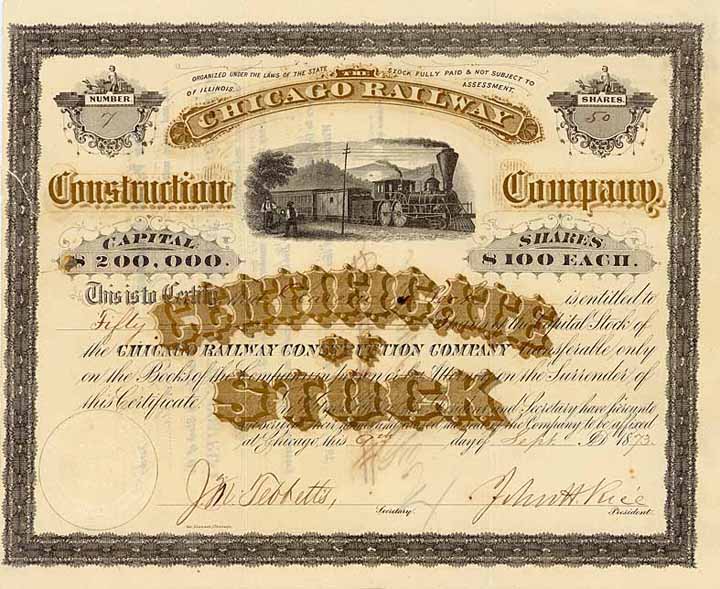 ORGANIZED UNDER THE LAWS OF THE STATE OF ILLINOIS.
THE
STOCK FULLY PAID & NOT SUBJECT TO ASSESSMENT.
NUMBER
7
CHICAGO RAILWAY
SHARES.
50
Construction Company
CAPITAL
$200,000.
SHARES
$100 EACH.
CERTIFICATE
OF
STOCK
This is to Certify is entitled to
Fifty Shares of the Capital Stock of
the CHICAGO RAILWAY CONSTRUCTION COMPANY transferable only
on the Books of the Company on the Surrender of
this Certificate.
and Secretary have hereunto
the Company to be affixed
at Chicago, this 9th day of Sept A.D. 1873.
J. M. Tebbetts,
Secretary.
John H. Rice
President.